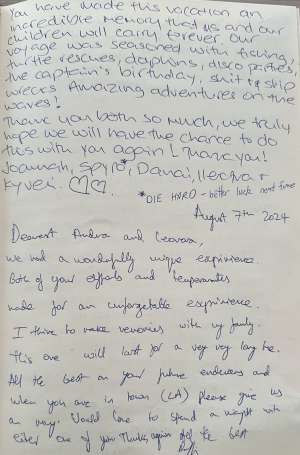 You have made this vacation an
incredible memory that us and our
children will carry forever. Our
voyage was seasoned with fishing,
turtle rescues, dolphins, disco parties,
the captain's birthday, shit & ship
wrecks. Amaizing adventures on the
waves!
Thank you both so much, we truly
hope we will have the chance to do
this with you again! Thank you!
Joannah, Spyro*, Danai, Ilectra +
*DIE HARD - better luck next time
August 7th 2024
Dearest and
we had a wonderfully unique exprivience.
Both of your efforts and
made for an unforgetable
I thrive to make memories with my family.
This one will last for a very very long time.
All the best on your future endeavors and
when you are in town (LA) please give us
Would love to spend a night with
either one of you. Thanks again All the best